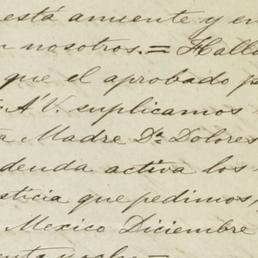 está amiente y en
nosotros.= Halla
que el aprobado p
A V. suplicamos
a Madre Da. Dolores
deuda activa los
sticia que pedimos,
Mexico Diciembre